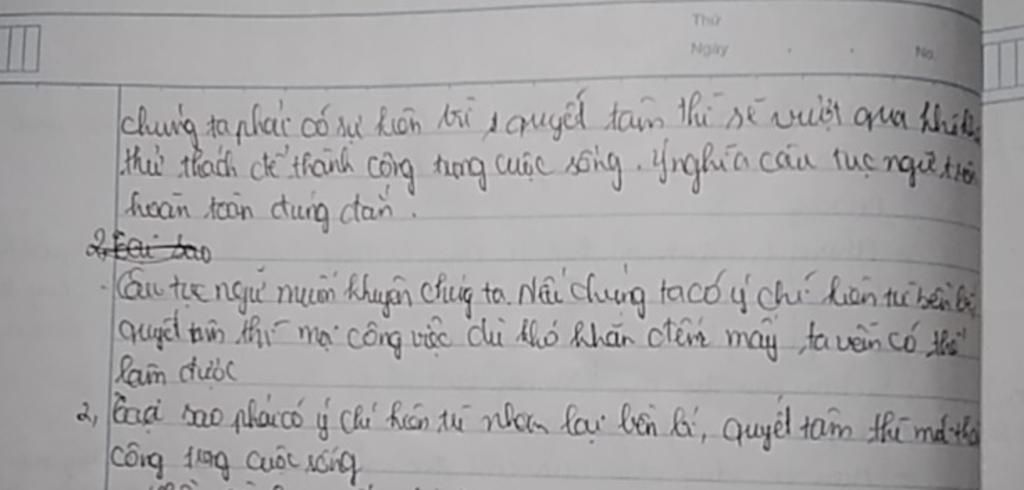 Thứ
Ngày No.
chúng ta phải có sự kiên trì, quyết tâm thì sẽ vượt qua khó khăn
thử thách để thành công trong cuộc sống. Ý nghĩa câu tục ngữ trên
hoàn toàn đúng đắn.
2, Tại sao
- Câu tục ngữ muốn khuyên chúng ta. Nếu chúng ta có ý chí kiên trì bền bỉ
quyết tâm thì mọi công việc dù khó khăn đến mấy, ta vẫn có thể
làm được
2, Tại sao phải có ý chí kiên trì nhẫn lại bền bỉ, quyết tâm thì mới thà
công trong cuộc sống